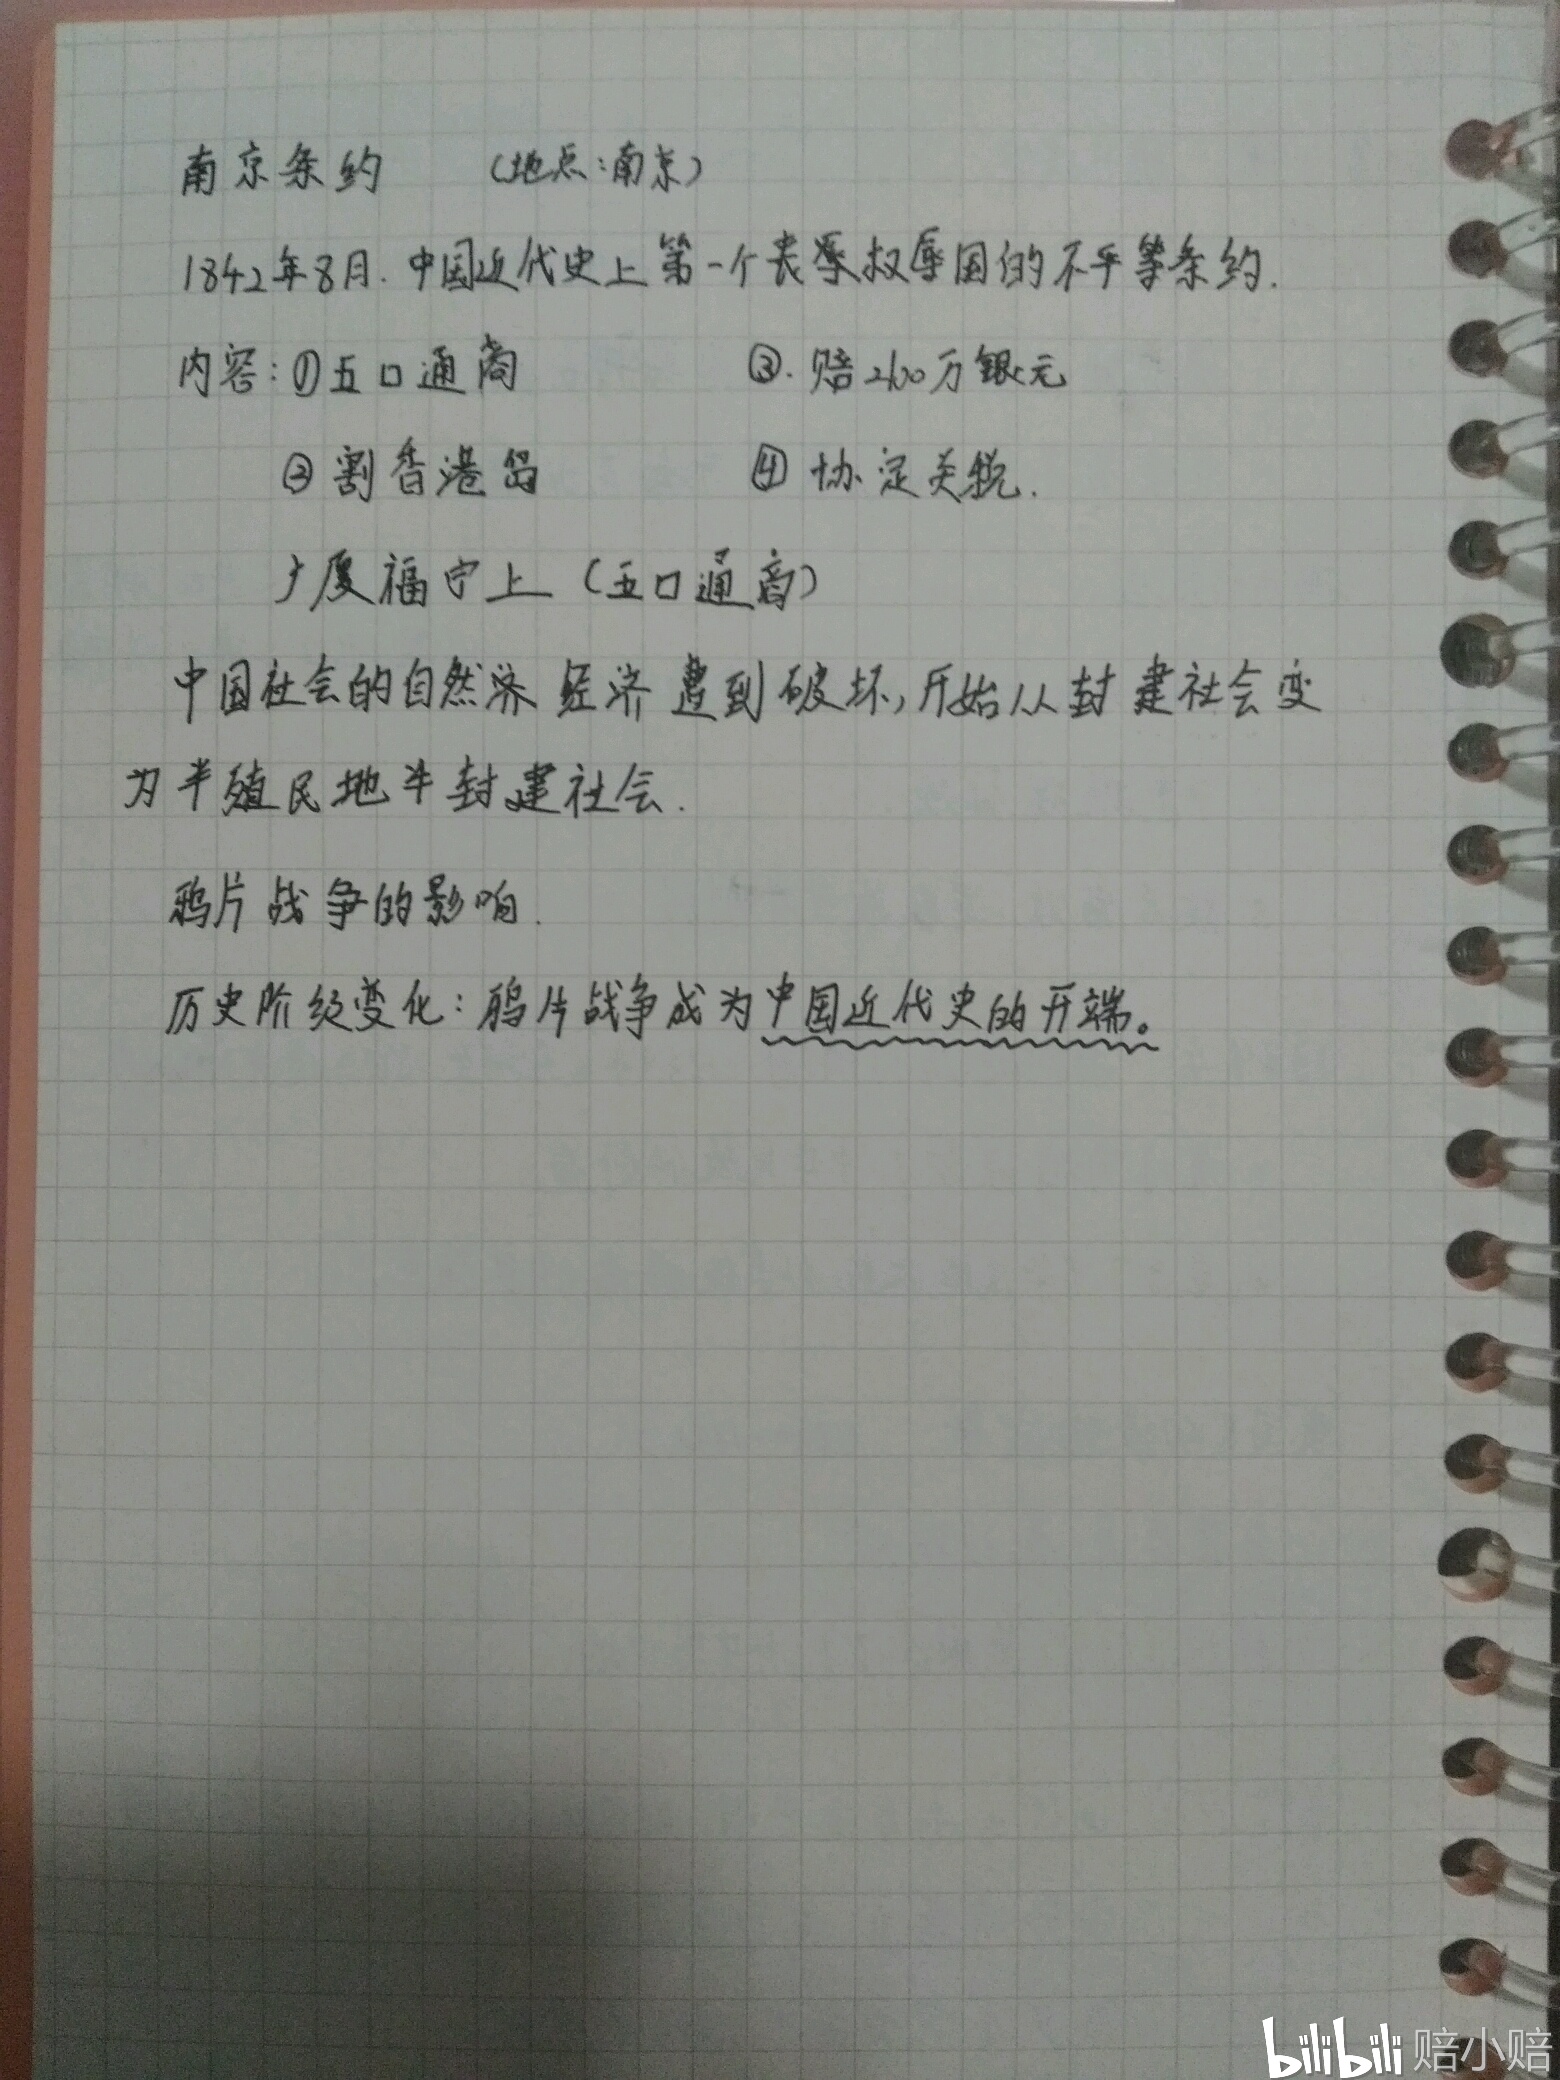 南京条约 (地点:南京)
1842年8月.中国近代史上第一个丧辱权辱国的不平等条约.
内容:①五口通商 ③.赔2100万银元
②割香港岛 ④协定关税.
广厦福宁上(五口通商)
中国社会的自然济经济遭到破坏,开始从封建社会变
为半殖民地半封建社会.
鸦片战争的影响.
历史阶段变化:鸦片战争成为中国近代史的开端。
bilibili 赔小赔